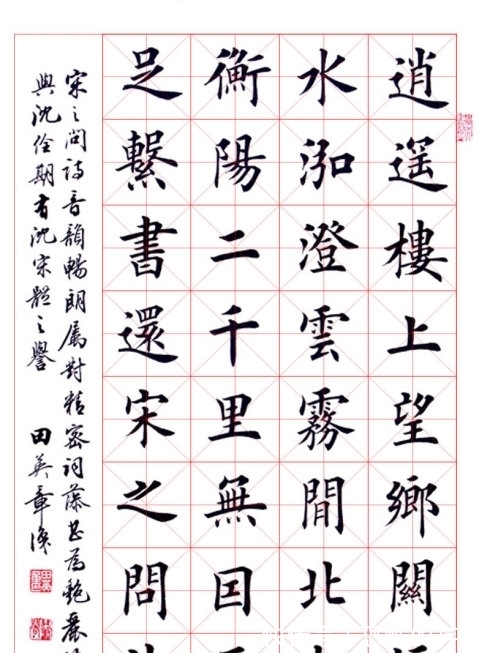 逍遥樓上望鄉關
水泓澄雲霧間北
衡陽二千里無囙
足繫書還宋之問
宋之問詩音韻暢朗屬對精密詞藻甚為艷麗
與沈佺期有沈宋體之譽 田英章